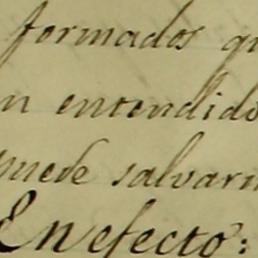 formados qu
n entendido
puede salvar
En efecto: